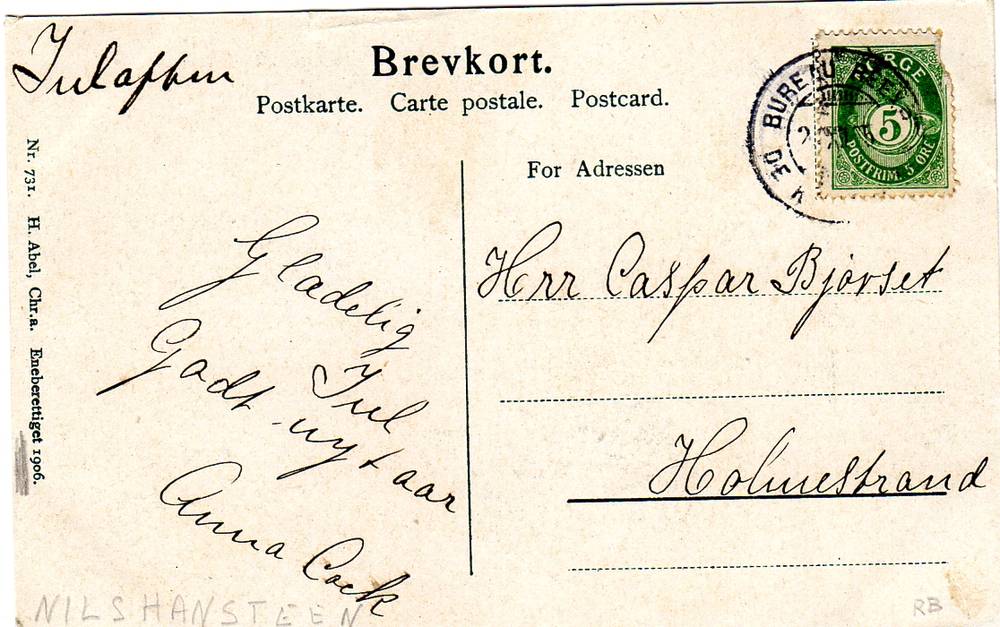 Julaften
Brevkort.
Postkarte. Carte postale. Postcard.
NORGE
5
POSTFRIM. 5 ØRE
BUREAU
For Adressen
Herr Caspar Bjørset
Holmestrand
Gladelig
Jul
Godt-nyt aar
Anna Cock
Nr. 731. H. Abel, Chr.a. Eneberettiget 1906.
NILS HANSTEEN
RB